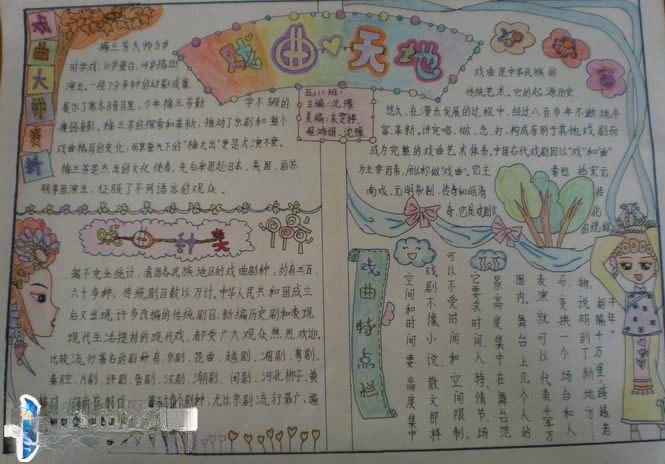 戏曲大师资料
梅兰芳大师8岁
时学戏，10岁登台，14岁搭班
演出。一段7分半钟的动影成像，
展示了寒冬腊月里，少年梅兰芳勤
学不辍的
瘦弱身影。梅兰芳的探索和革新，推动了京剧和整个
戏曲格局的变化，而享誉天下的“梅之出”更是大演不衰。
梅兰芳是杰出的文化使者，先后率团赴日本、美国、前苏
联等国演出，征服了不同语言的观众。
戏曲天地
五(1)班：
主编：沈臻
美编：
沈臻
戏曲是中华民族的
传统艺术，它的起源历史
悠久，在漫长发展的过程中，经过八百多年不断地丰
富、革新，讲究唱、做、念、打，构成有别于其他戏剧而
成为完整的戏曲艺术体系。中国古代戏剧因以“戏”和“曲”
为主要因素，所以称做“戏曲”。它主
要包括宋元
南戏、元明杂剧、传奇和明清
传
奇，它是戏剧文
北
戏曲种类
据不完全统计，我国各民族地区的戏曲剧种，约有三百
六十多种，传统剧目数以万计。中华人民共和国成立
后又出现许多改编的传统剧目，新编历史剧和表现
现代生活提材的现代戏，都受广大观众热烈欢迎。
比较流行著名的剧种有：京剧、昆曲、越剧、湘剧、粤剧、
秦腔、川剧、评剧、晋剧、汉剧、潮剧、闽剧、河北梆子、黄
等
个剧种，尤以京剧流行最广，遍
戏曲特点栏
千年。
相隔千万里，跨越若
物，说明到了新地方……
马，变换一个场合和人
表演就可以代表千军万
围内。舞台上几个人的
景高度集中在舞台范
它要求时间、人特、情节、场
可以不受时间和空间限制，
戏剧不像小说、散文那样
空间和时间要高度集中